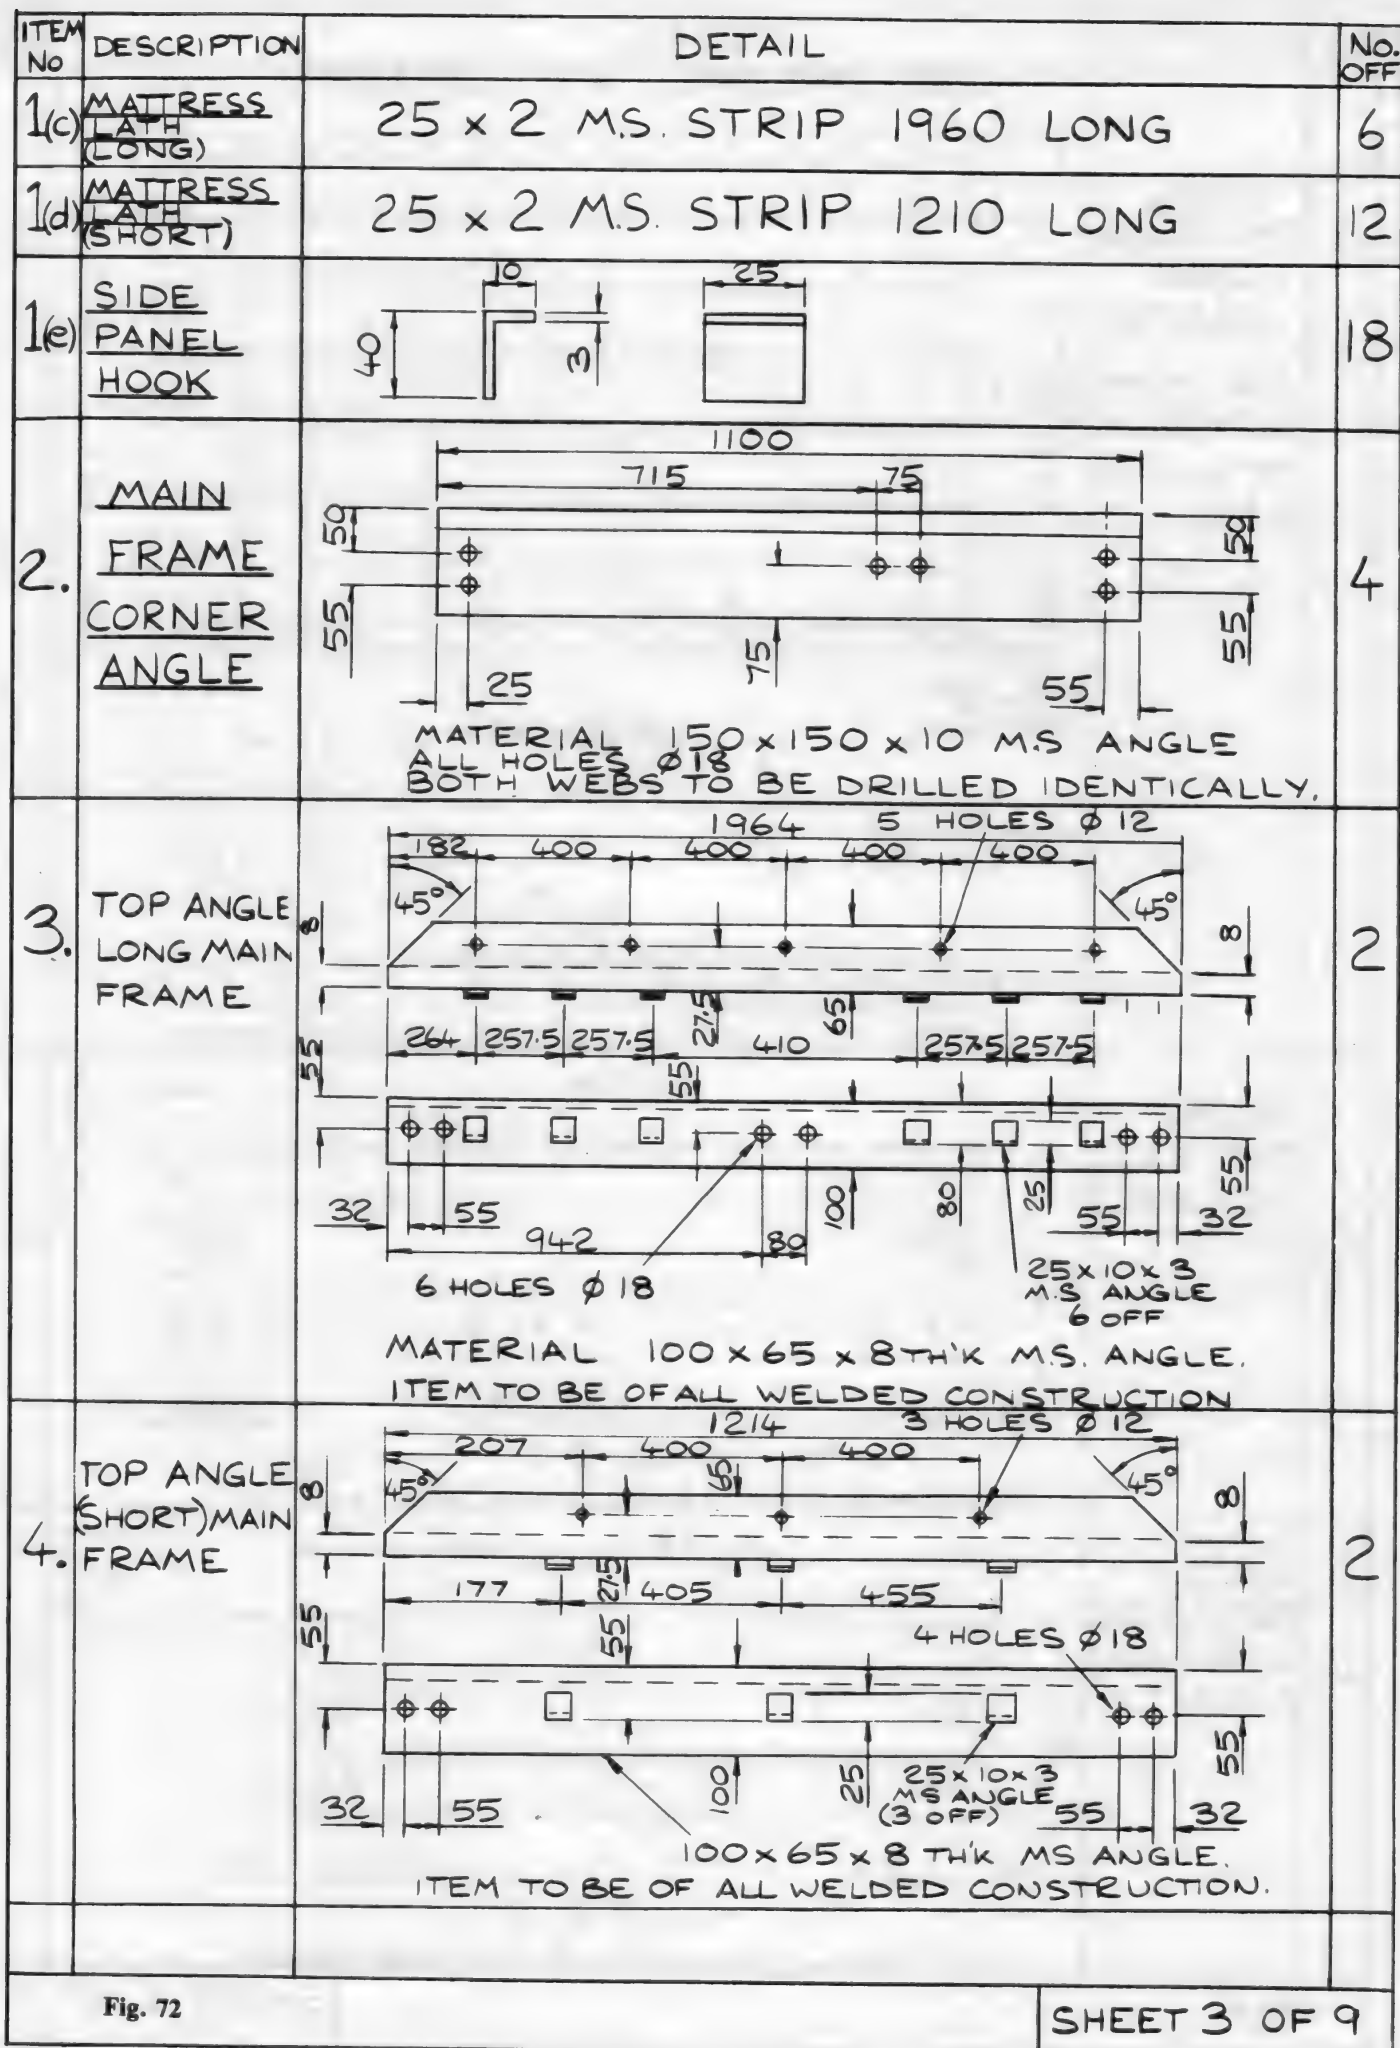 ITEM No DESCRIPTION DETAIL No. OFF
1(c) MATTRESS LATH (LONG) 25 x 2 M.S. STRIP 1960 LONG 6
1(d) MATTRESS LATH (SHORT) 25 x 2 M.S. STRIP 1210 LONG 12
1(e) SIDE PANEL HOOK 18
10 25
40 3
2. MAIN FRAME CORNER ANGLE 4
1100
715 75
50 50
55 75 55
25 55
MATERIAL 150 x 150 x 10 M.S ANGLE
ALL HOLES Ø 18
BOTH WEBS TO BE DRILLED IDENTICALLY.
3. TOP ANGLE LONG MAIN FRAME 2
1964 5 HOLES Ø 12
182 400 400 400 400
45° 45°
8 8
27.5 65
264 257.5 257.5 410 257.5 257.5
55 55
100 80 25 55
32 55 55 32
942 80
6 HOLES Ø 18
25 x 10 x 3
M.S ANGLE
6 OFF
MATERIAL 100 x 65 x 8 TH'K M.S. ANGLE.
ITEM TO BE OF ALL WELDED CONSTRUCTION
4. TOP ANGLE (SHORT) MAIN FRAME 2
1214 3 HOLES Ø 12
207 400 400
45° 65 45°
8 8
177 27.5 405 455
55 55
4 HOLES Ø 18
100 25 55
25 x 10 x 3
MS ANGLE
(3 OFF)
32 55 55 32
100 x 65 x 8 TH'K MS ANGLE.
ITEM TO BE OF ALL WELDED CONSTRUCTION.
Fig. 72
SHEET 3 OF 9